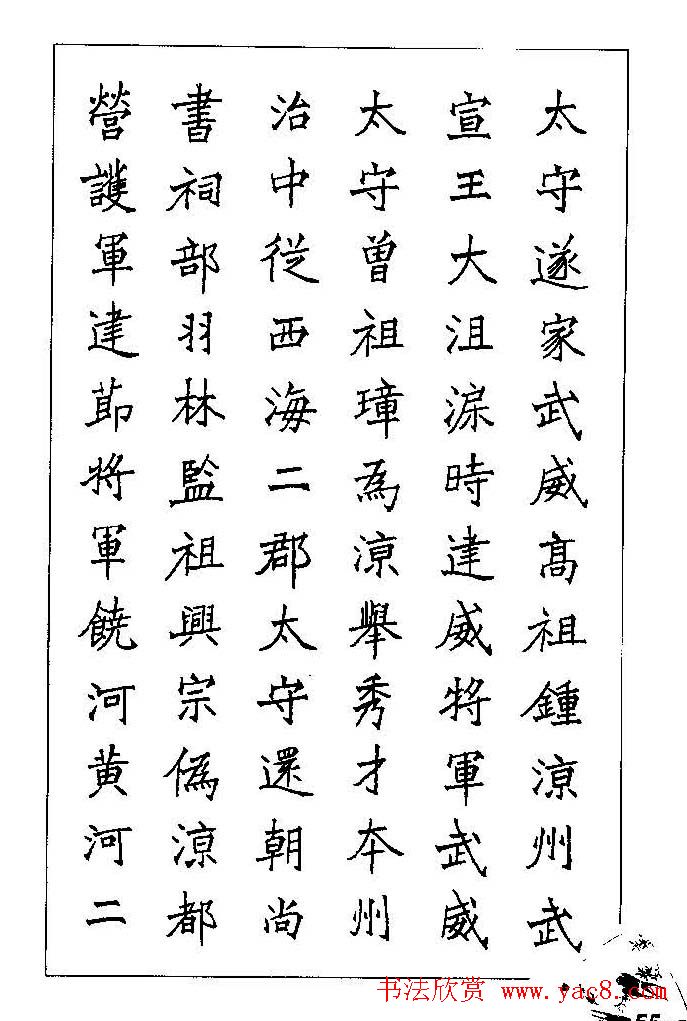 太守遂家武威高祖鍾涼州武
宣王大沮渌時建威將軍武威
太守曽祖璋為涼舉秀才本州
治中從西海二郡太守還朝尚
書祠部羽林監祖興宗偽涼都
營護軍建節將軍饒河黄河二
书法欣赏 www.yac8.com